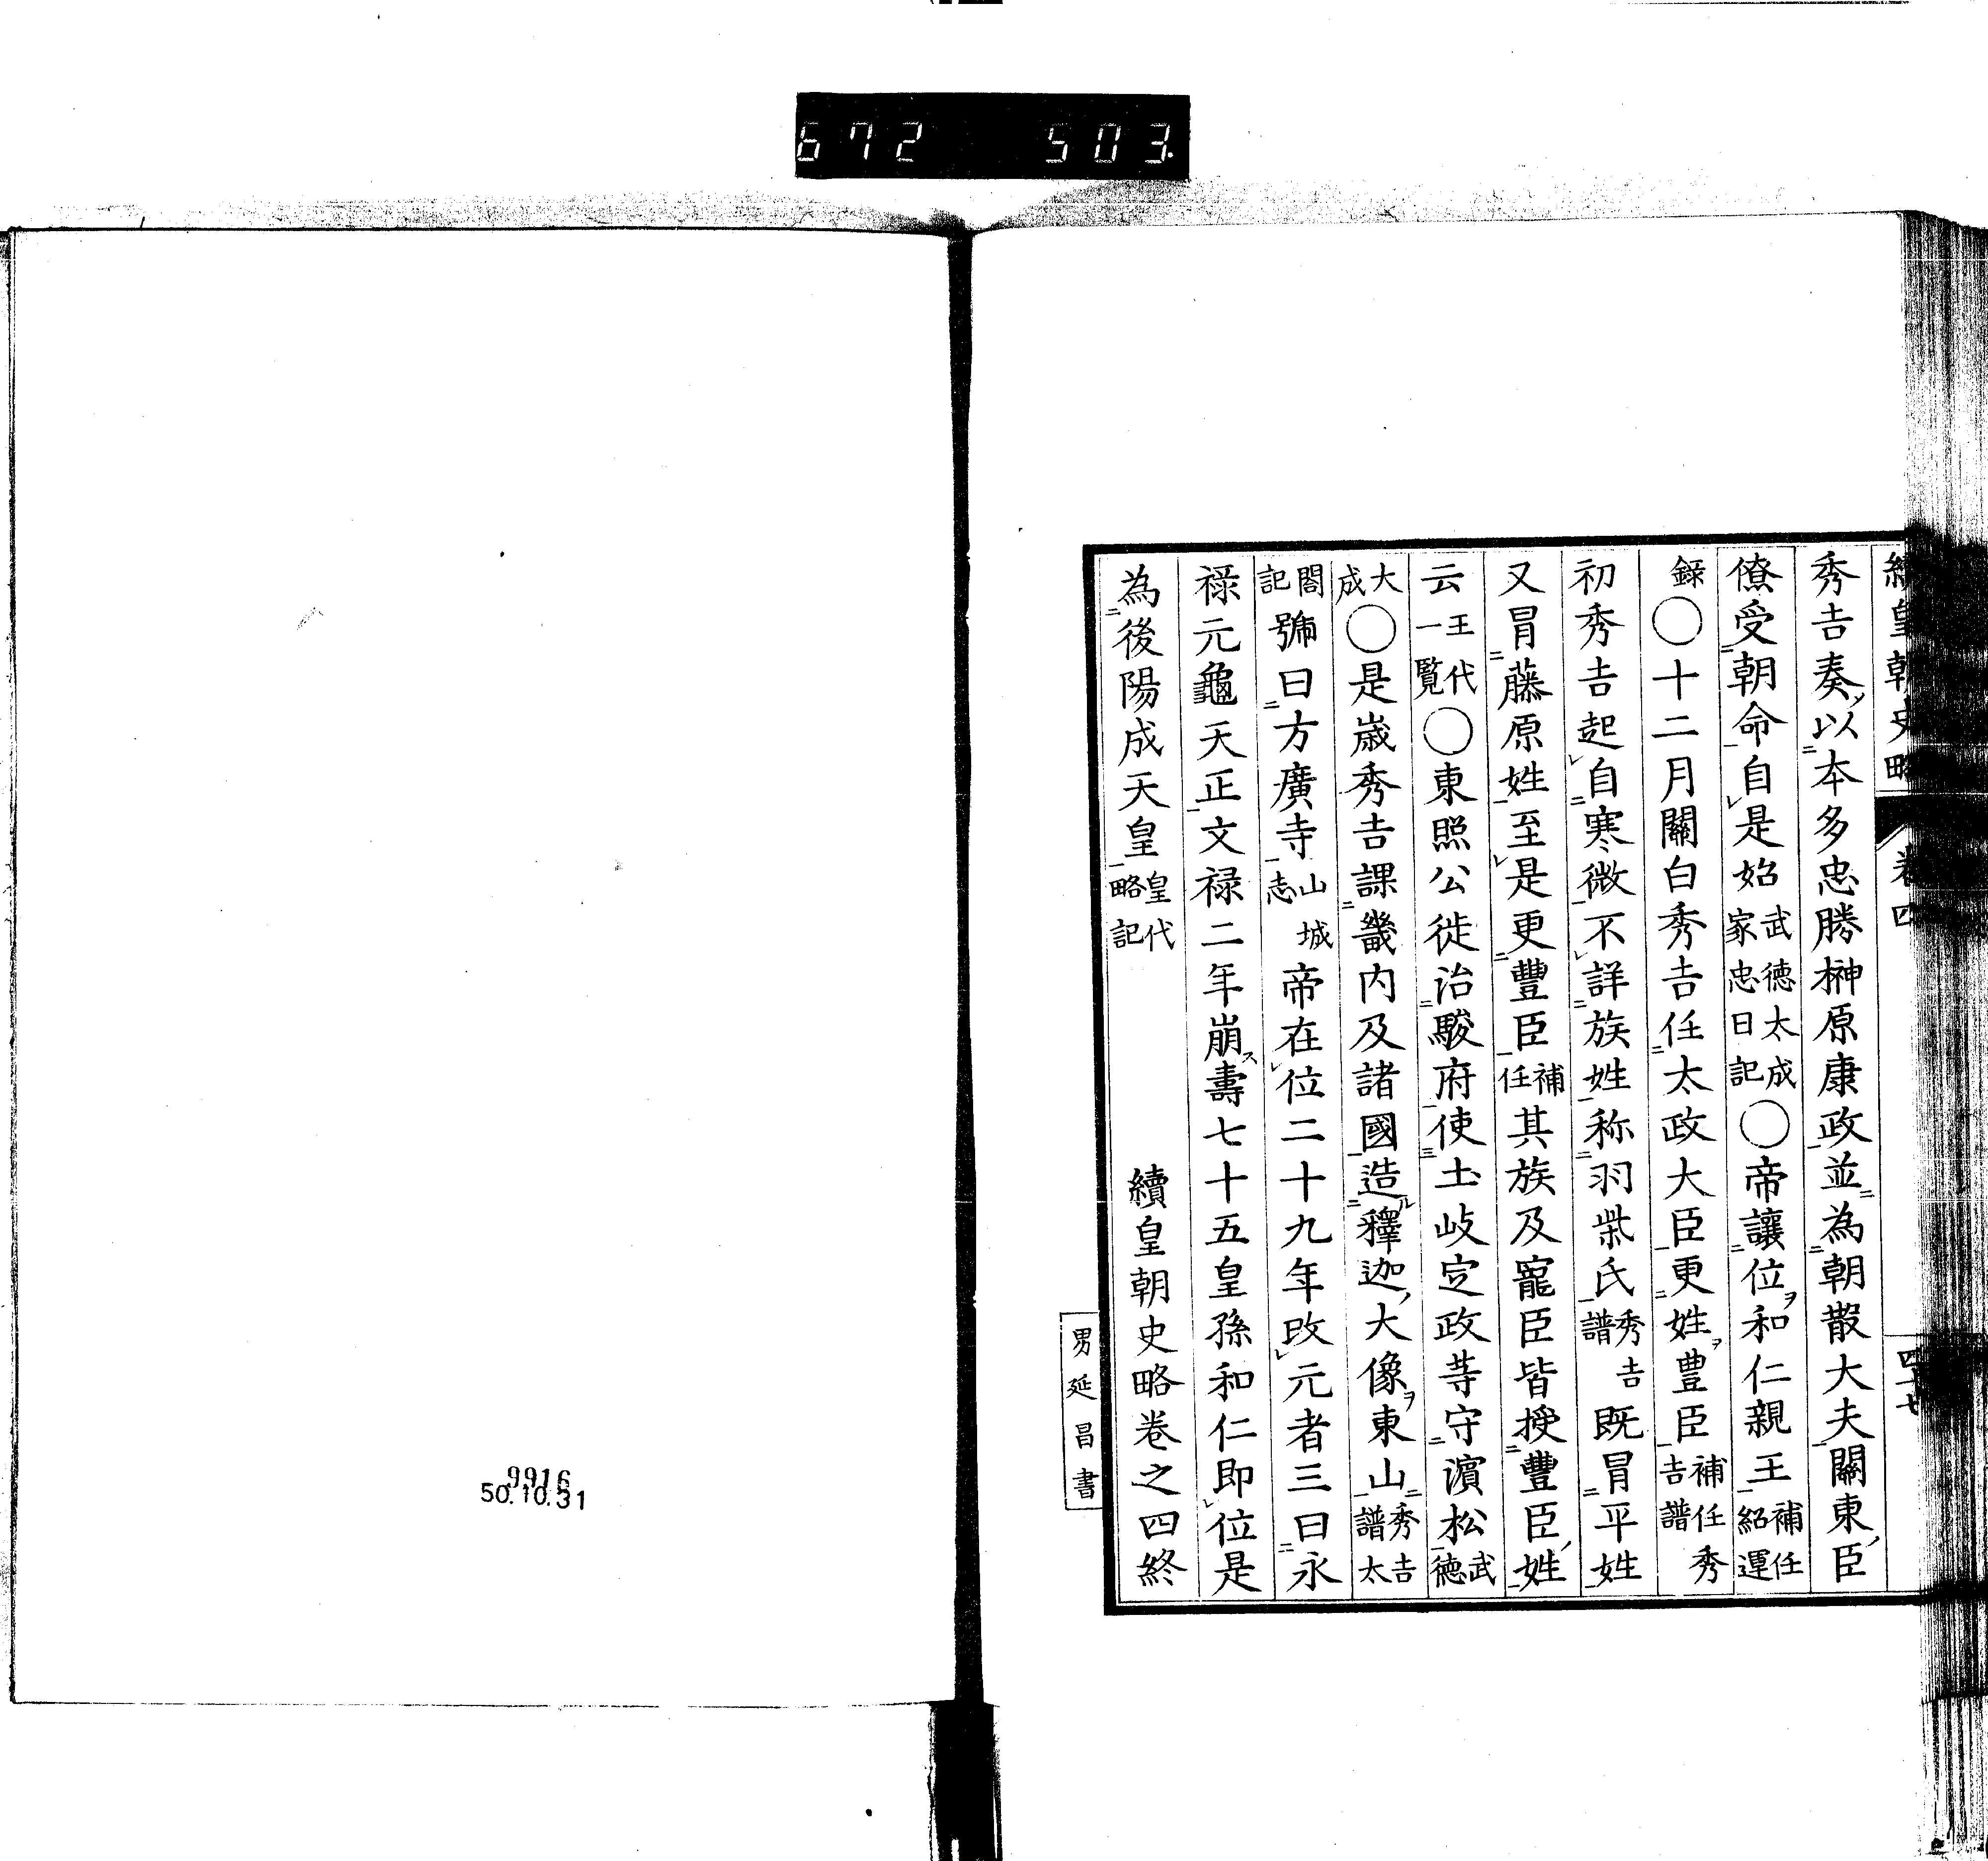 672 503.
續皇朝史略 卷四 四十七
秀吉奏以本多忠勝榊原康政並為朝散大夫關東臣
僚受朝命自是始武德大成家忠日記○帝讓位和仁親王補任紹運
錄○十二月關白秀吉任太政大臣更姓豊臣補任秀吉譜
初秀吉起自寒微不詳族姓称羽柴氏秀吉譜既冒平姓
又冒藤原姓至是更豐臣補任其族及寵臣皆授豐臣姓
云王代一覧○東照公徙治駿府使土岐定政等守濵松武德
大成○是歳秀吉課畿内及諸國造釋迦大像東山秀吉譜太
閤記號曰方廣寺山城志帝在位二十九年改元者三曰永
禄元龜天正文禄二年崩壽七十五皇孫和仁即位是
為後陽成天皇皇代略記 續皇朝史略卷之四終
男延昌書
9916
50.10.31